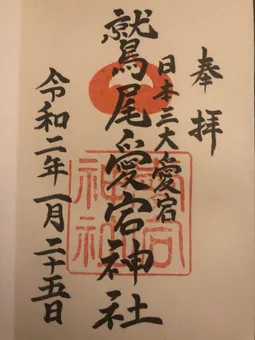 奉拝
日本三大愛宕
鷲尾愛宕神社
令和二年一月二十五日